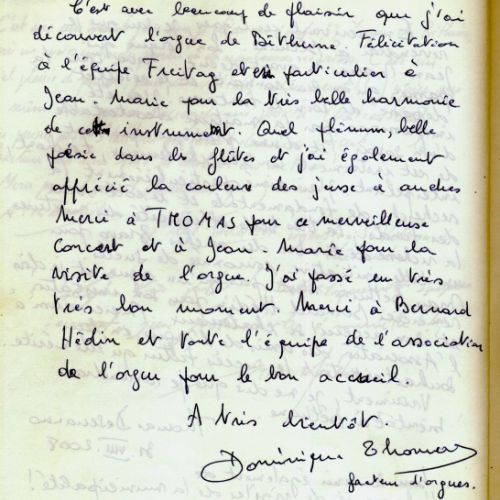 C'est avec beaucoup de plaisir que j'ai
découvert l'orgue de Béthune. Félicitation
à l'équipe Freitag et en particulier à
Jean-Marie pour la très belle harmonie
de cet instrument. Quel plénum, belle
poésie dans les flûtes et j'ai également
apprécié la couleur des jeux à anches
Merci à THOMAS pour ce merveilleuse
Concert et à Jean-Marie pour la
visite de l'orgue. J'ai passé un très
très bon moment. Merci à Bernard
Hédin et toute l'équipe de l'association
de l'orgue pour le bon accueil.
A très bientôt.
Dominique Thomas
facteur d'orgues.